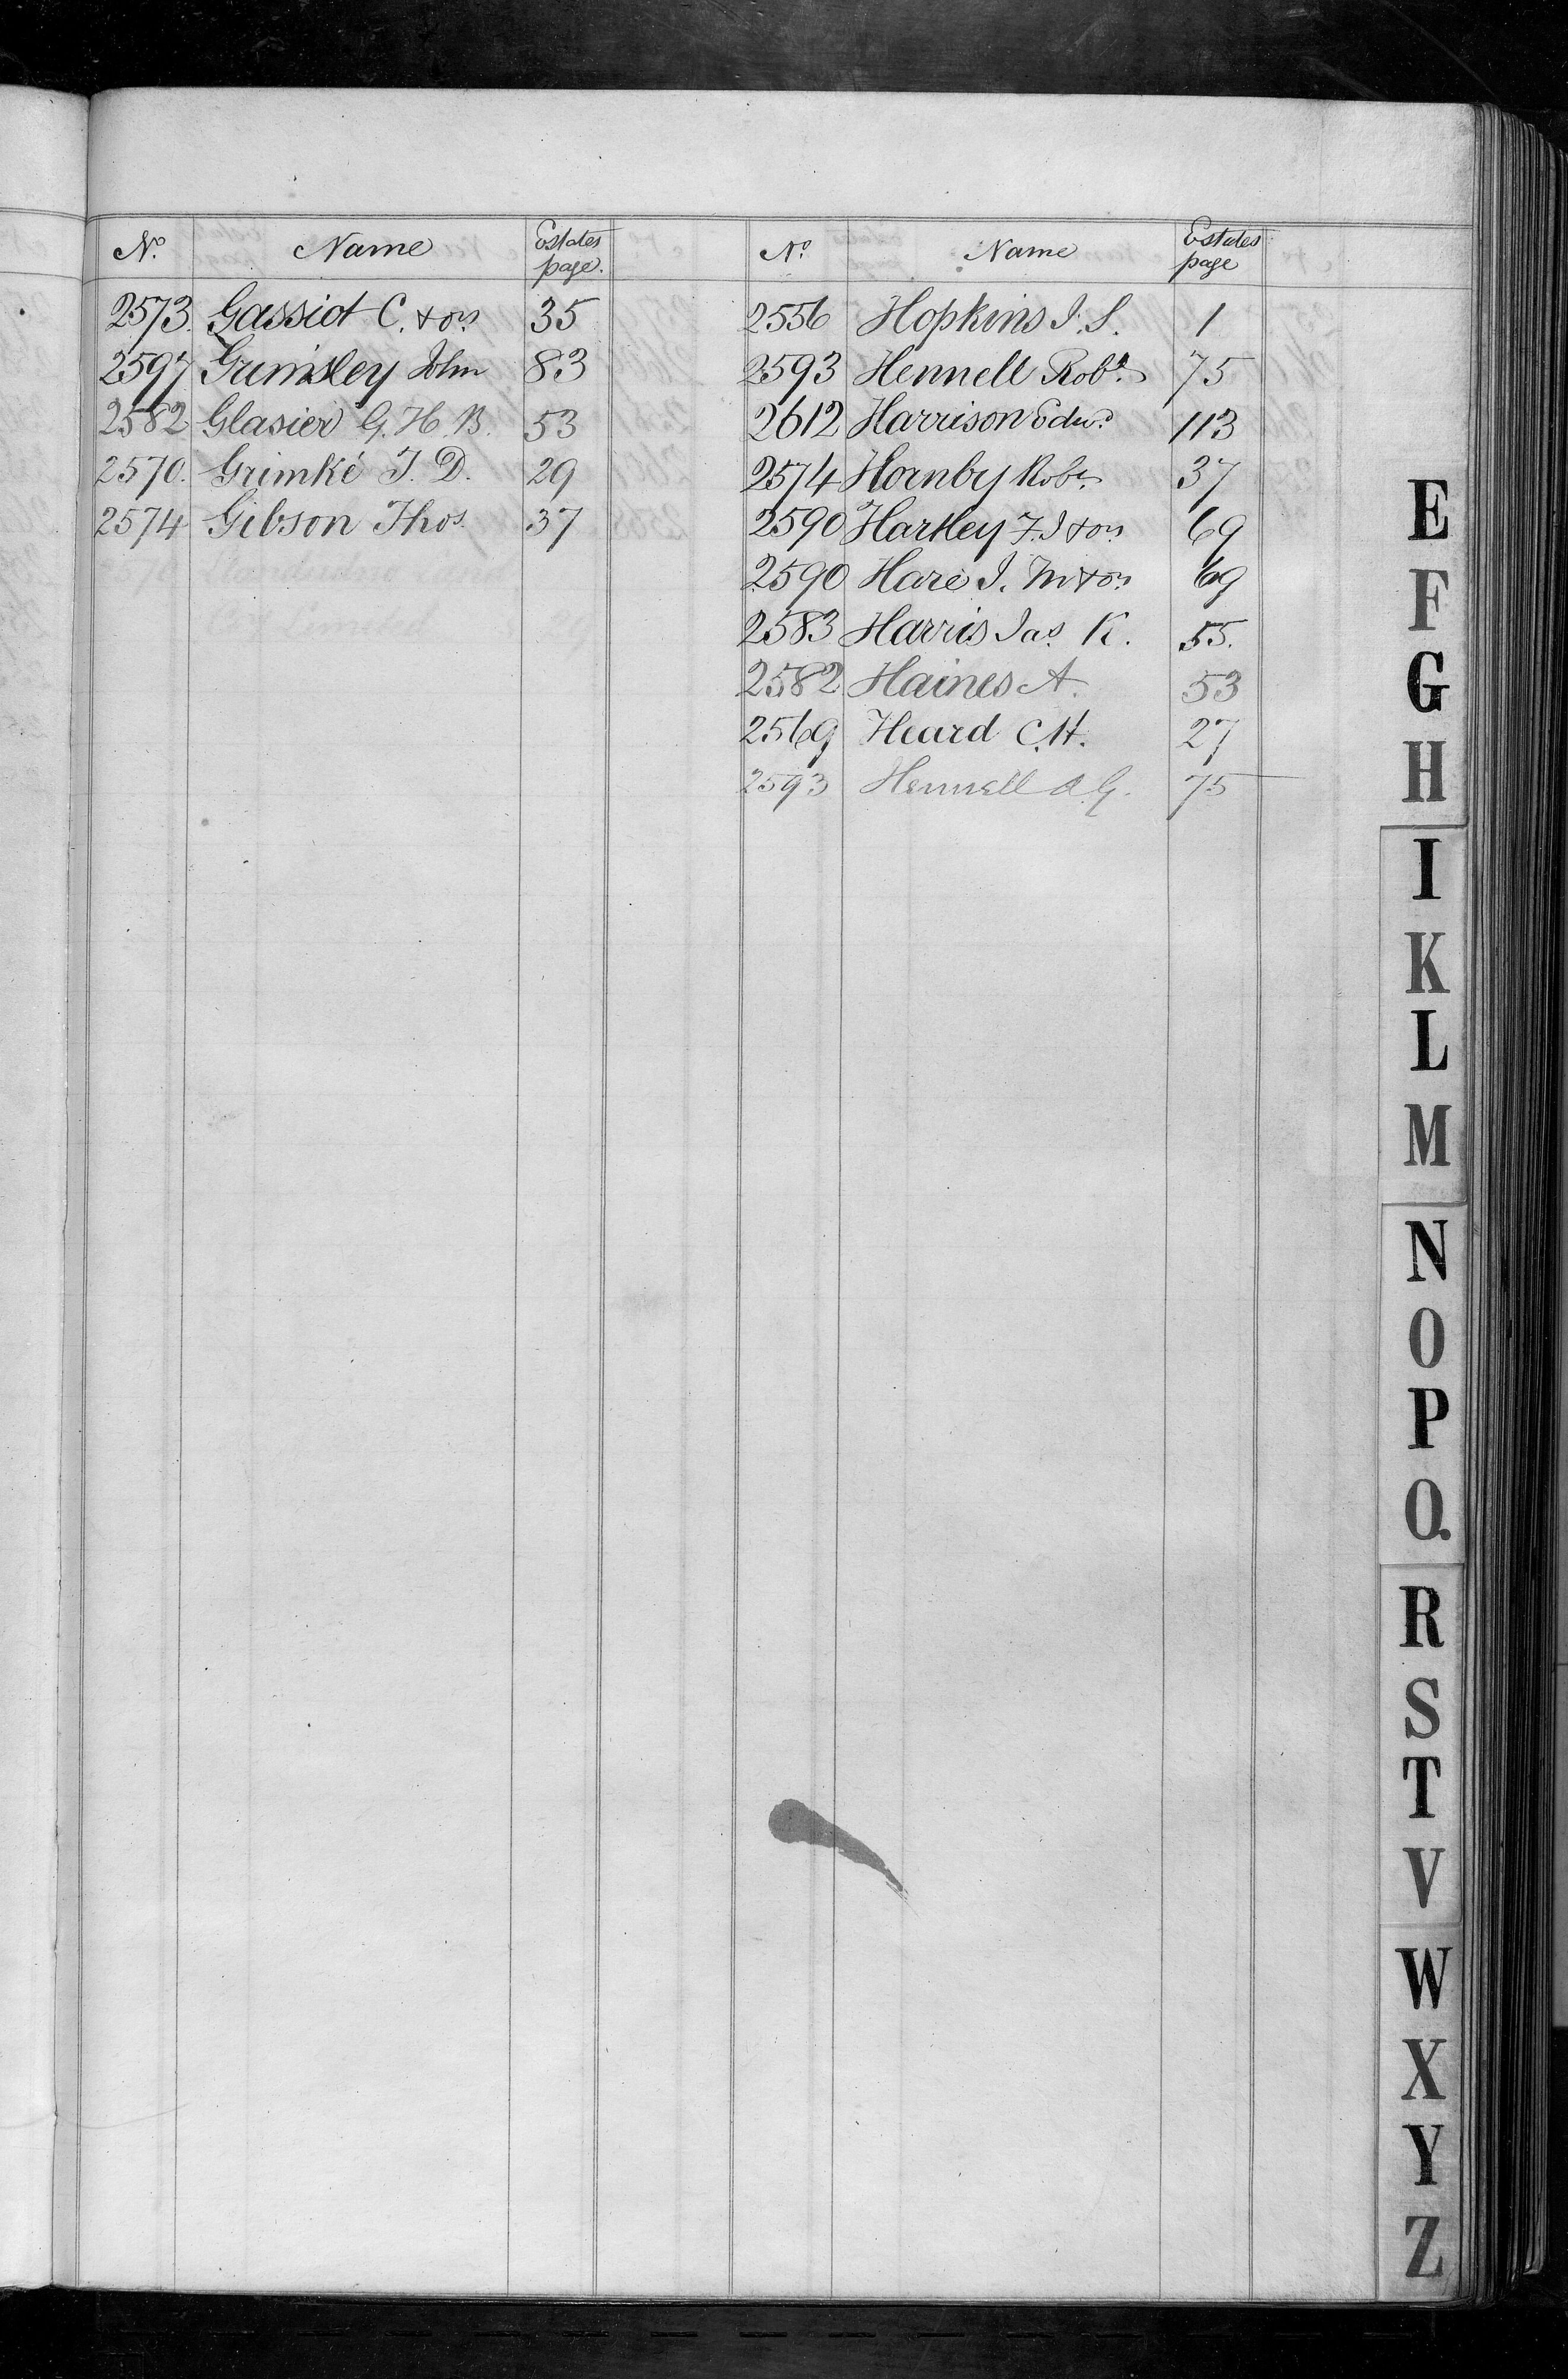 No. Name Estates page.
2573. Gassiot C. & ors 35
2597 Grimsley John 83
2582 Glasier G. H. B. 53
2570. Grimké T. D. 29
2574 Gibson Thos. 37
No. Name Estates page
2556 Hopkins J. S. 1
2593 Hennell Robt. 75
2612 Harrison Edwd. 113
2574 Hornby Robt. 37
2590 Hartley F. J & ors 69
2590 Hare J. M & ors 69
2583 Harris Jas. K. 55.
2582 Haines A. 53
2569 Heard C. H. 27
2593 Hennell G. 75
E
F
G
H
I
K
L
M
N
O
P
Q.
R
S
T
V
W
X
Y
Z